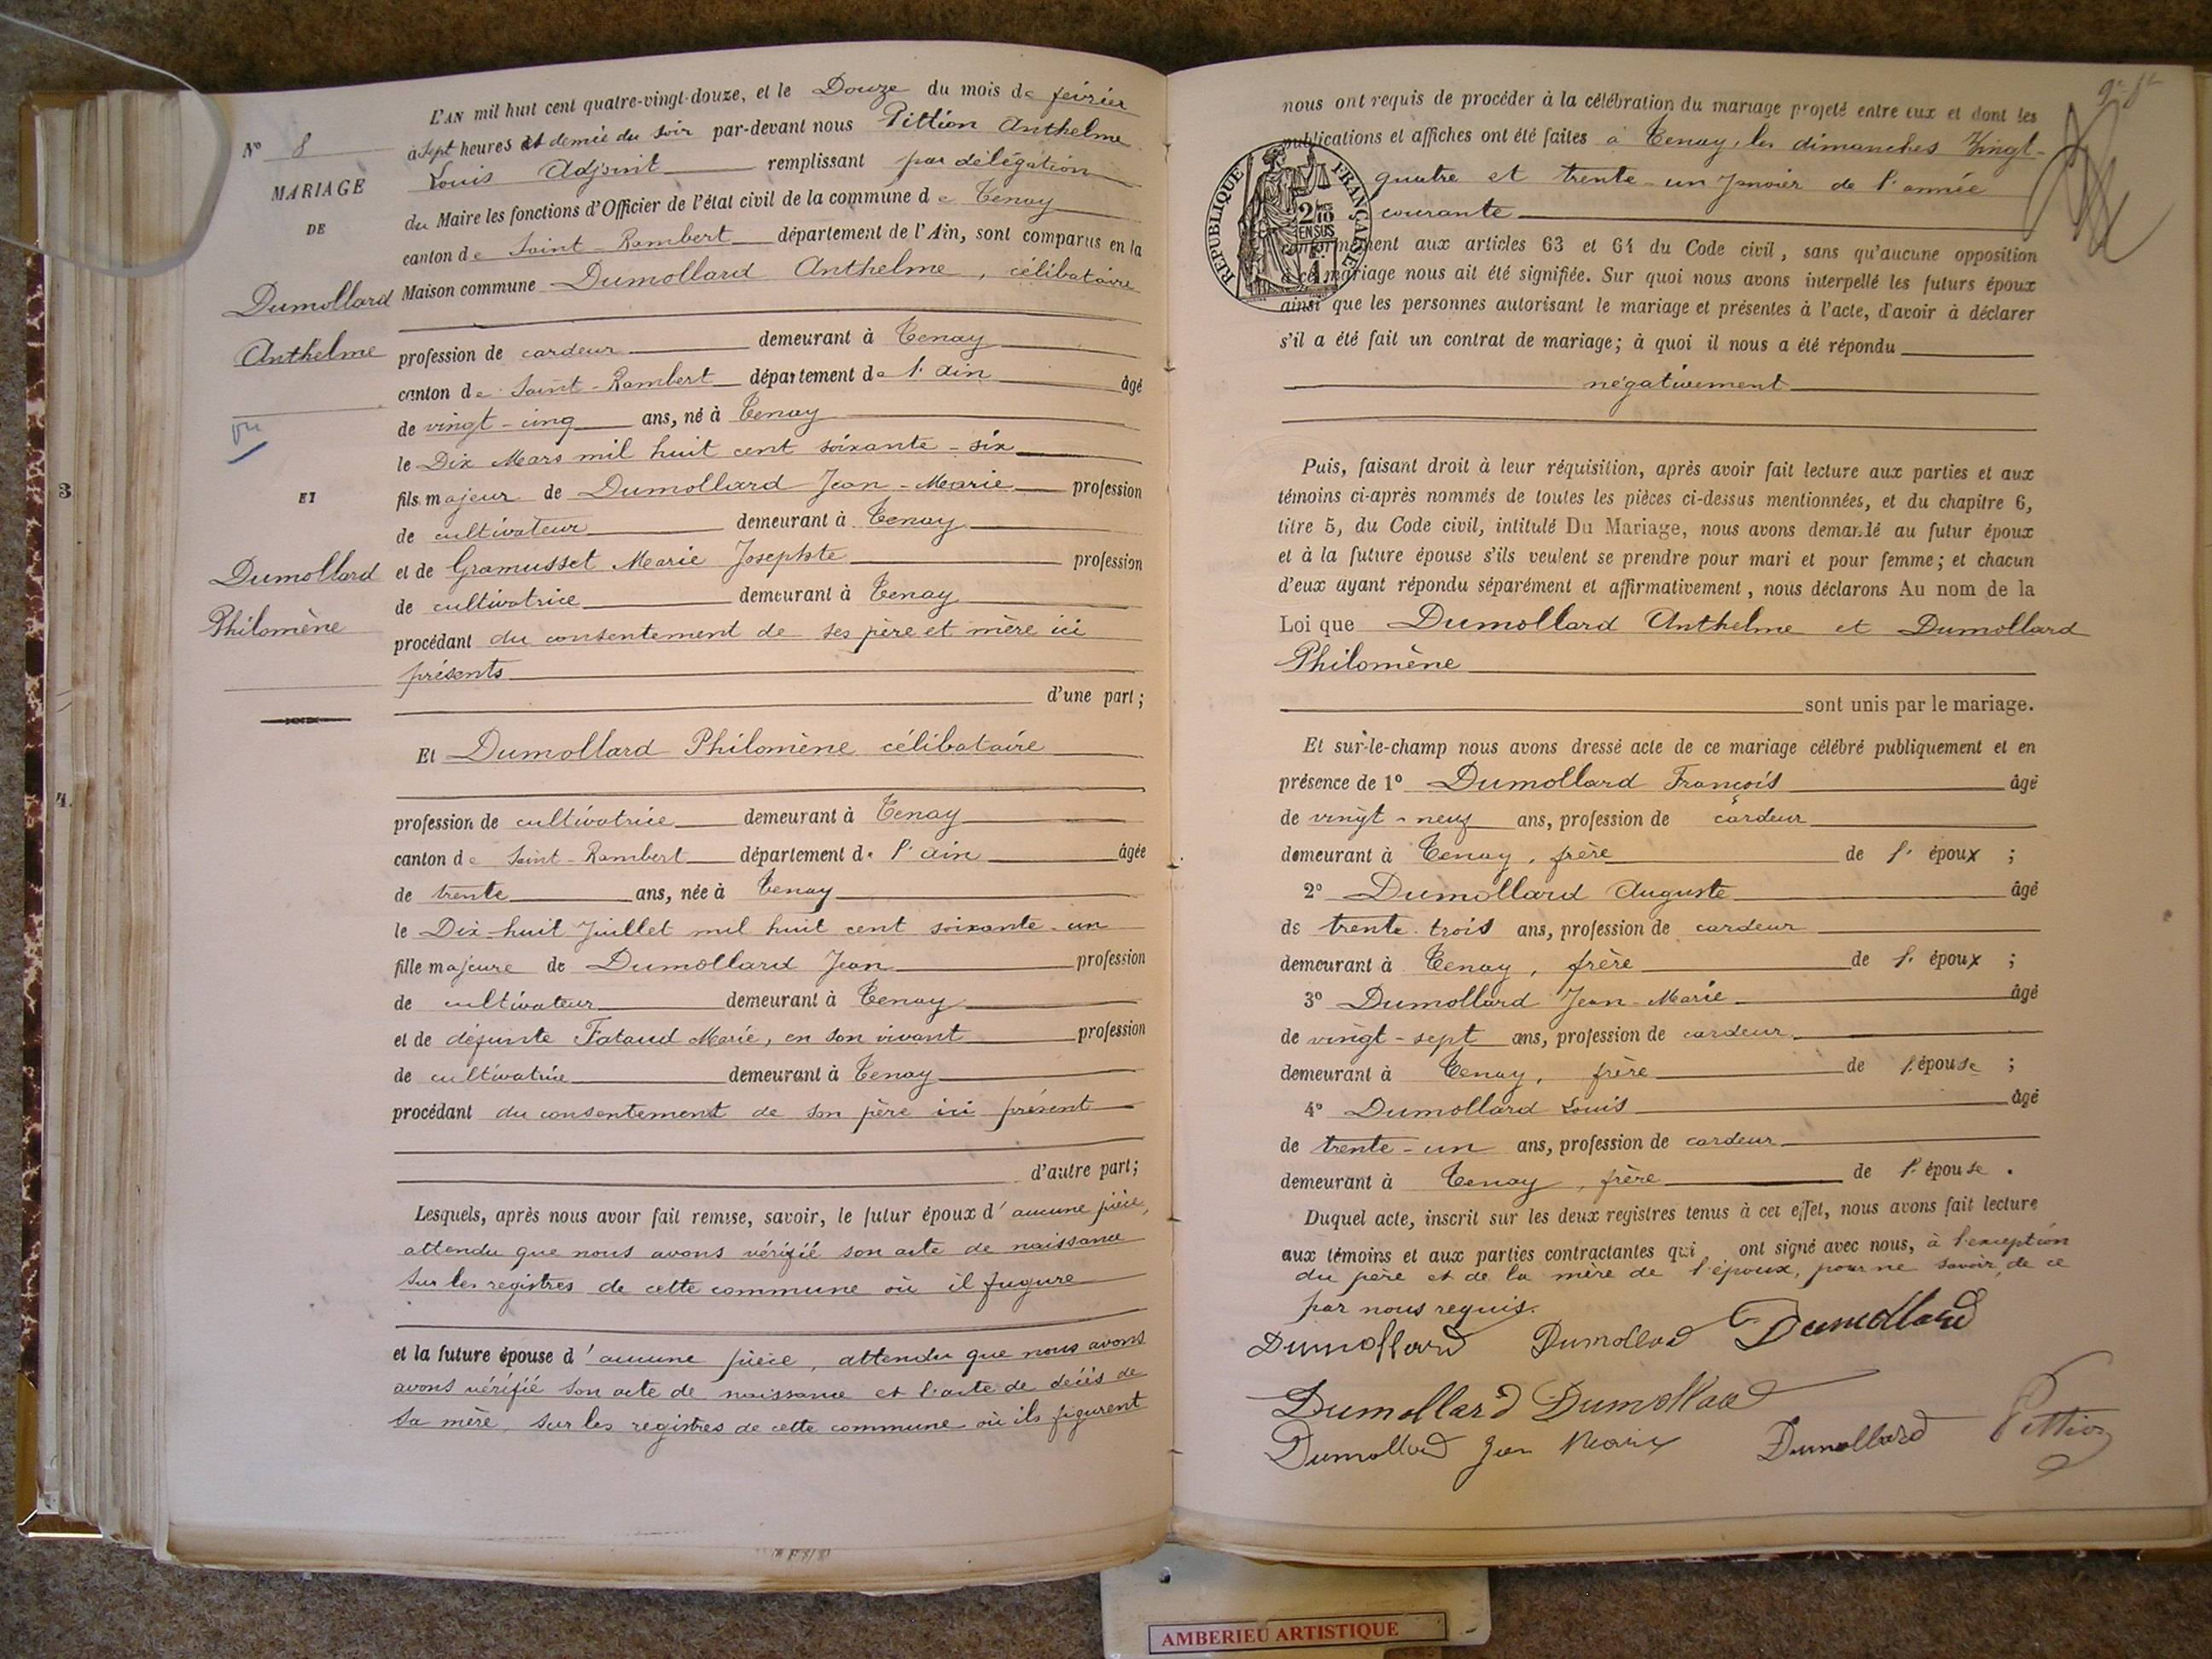 L'AN mil huit cent quatre-vingt-douze, et le Douze du mois de février
à sept heures et demie du soir par-devant nous Pittion Anthelme
Louis Adjoint remplissant par délégation
du Maire les fonctions d'Officier de l'état civil de la commune de Tenay
canton de Saint-Rambert département de l'Ain, sont comparus en la
Maison commune Dumollard Anthelme, célibataire
profession de cardeur demeurant à Tenay
canton de Saint-Rambert département de l'Ain âgé
de vingt-cinq ans, né à Tenay
le Dix Mars mil huit cent soixante-six
fils majeur de Dumollard Jean-Marie profession
de cultivateur demeurant à Tenay
et de Gramusset Marie Josephte profession
de cultivatrice demeurant à Tenay
procédant du consentement de ses père et mère ici
présents
d'une part;
Et Dumollard Philomène célibataire
profession de cultivatrice demeurant à Tenay
canton de Saint-Rambert département de l'Ain âgée
de trente ans, née à Tenay
le Dix-huit Juillet mil huit cent soixante-un
fille majeure de Dumollard Jean profession
de cultivateur demeurant à Tenay
et de défunte Fataud Marie, en son vivant profession
de cultivatrice demeurant à Tenay
procédant du consentement de son père ici présent
d'autre part;
Lesquels, après nous avoir fait remise, savoir, le futur époux d'aucune pièce,
attendu que nous avons vérifié son acte de naissance
sur les registres de cette commune où il fugure
et la future épouse d'aucune pièce, attendu que nous avons
avons vérifié son acte de naissance et l'acte de décès de
sa mère, sur les registres de cette commune où ils figurent
N° 8
MARIAGE
DE
Dumollard
Anthelme
vu
ET
Dumollard
Philomène
3
4.
nous ont requis de procéder à la célébration du mariage projeté entre eux et dont les
publications et affiches ont été faites à Tenay, les dimanches Vingt-
quatre et trente-un Janvier de l'année
courante
conformément aux articles 63 et 64 du Code civil, sans qu'aucune opposition
à ce mariage nous ait été signifiée. Sur quoi nous avons interpellé les futurs époux
ainsi que les personnes autorisant le mariage et présentes à l'acte, d'avoir à déclarer
s'il a été fait un contrat de mariage; à quoi il nous a été répondu
négativement
Puis, faisant droit à leur réquisition, après avoir fait lecture aux parties et aux
témoins ci-après nommés de toutes les pièces ci-dessus mentionnées, et du chapitre 6,
titre 5, du Code civil, intitulé Du Mariage, nous avons demandé au futur époux
et à la future épouse s'ils veulent se prendre pour mari et pour femme; et chacun
d'eux ayant répondu séparément et affirmativement, nous déclarons Au nom de la
Loi que Dumollard Anthelme et Dumollard
Philomène
sont unis par le mariage.
Et sur-le-champ nous avons dressé acte de ce mariage célébré publiquement et en
présence de 1° Dumollard François âgé
de vingt-neuf ans, profession de cardeur
demeurant à Tenay, frère de l'époux ;
2° Dumollard Auguste âgé
de trente-trois ans, profession de cardeur
demeurant à Tenay, frère de l'époux ;
3° Dumollard Jean-Marie âgé
de vingt-sept ans, profession de cardeur
demeurant à Tenay, frère de l'épouse ;
4° Dumollard Louis âgé
de trente-un ans, profession de cardeur
demeurant à Tenay, frère de l'épouse.
Duquel acte, inscrit sur les deux registres tenus à cet effet, nous avons fait lecture
aux témoins et aux parties contractantes qui ont signé avec nous, à l'exception
du père et de la mère de l'époux, pour ne savoir, de ce
par nous requis.
Dumollard Dumollard F Dumollard
Dumollard Dumollard
Dumollard Jean Marie Dumollard Pittion
RÉPUBLIQUE FRANÇAISE
2/10
EN SUS
AMBERIEU ARTISTIQUE